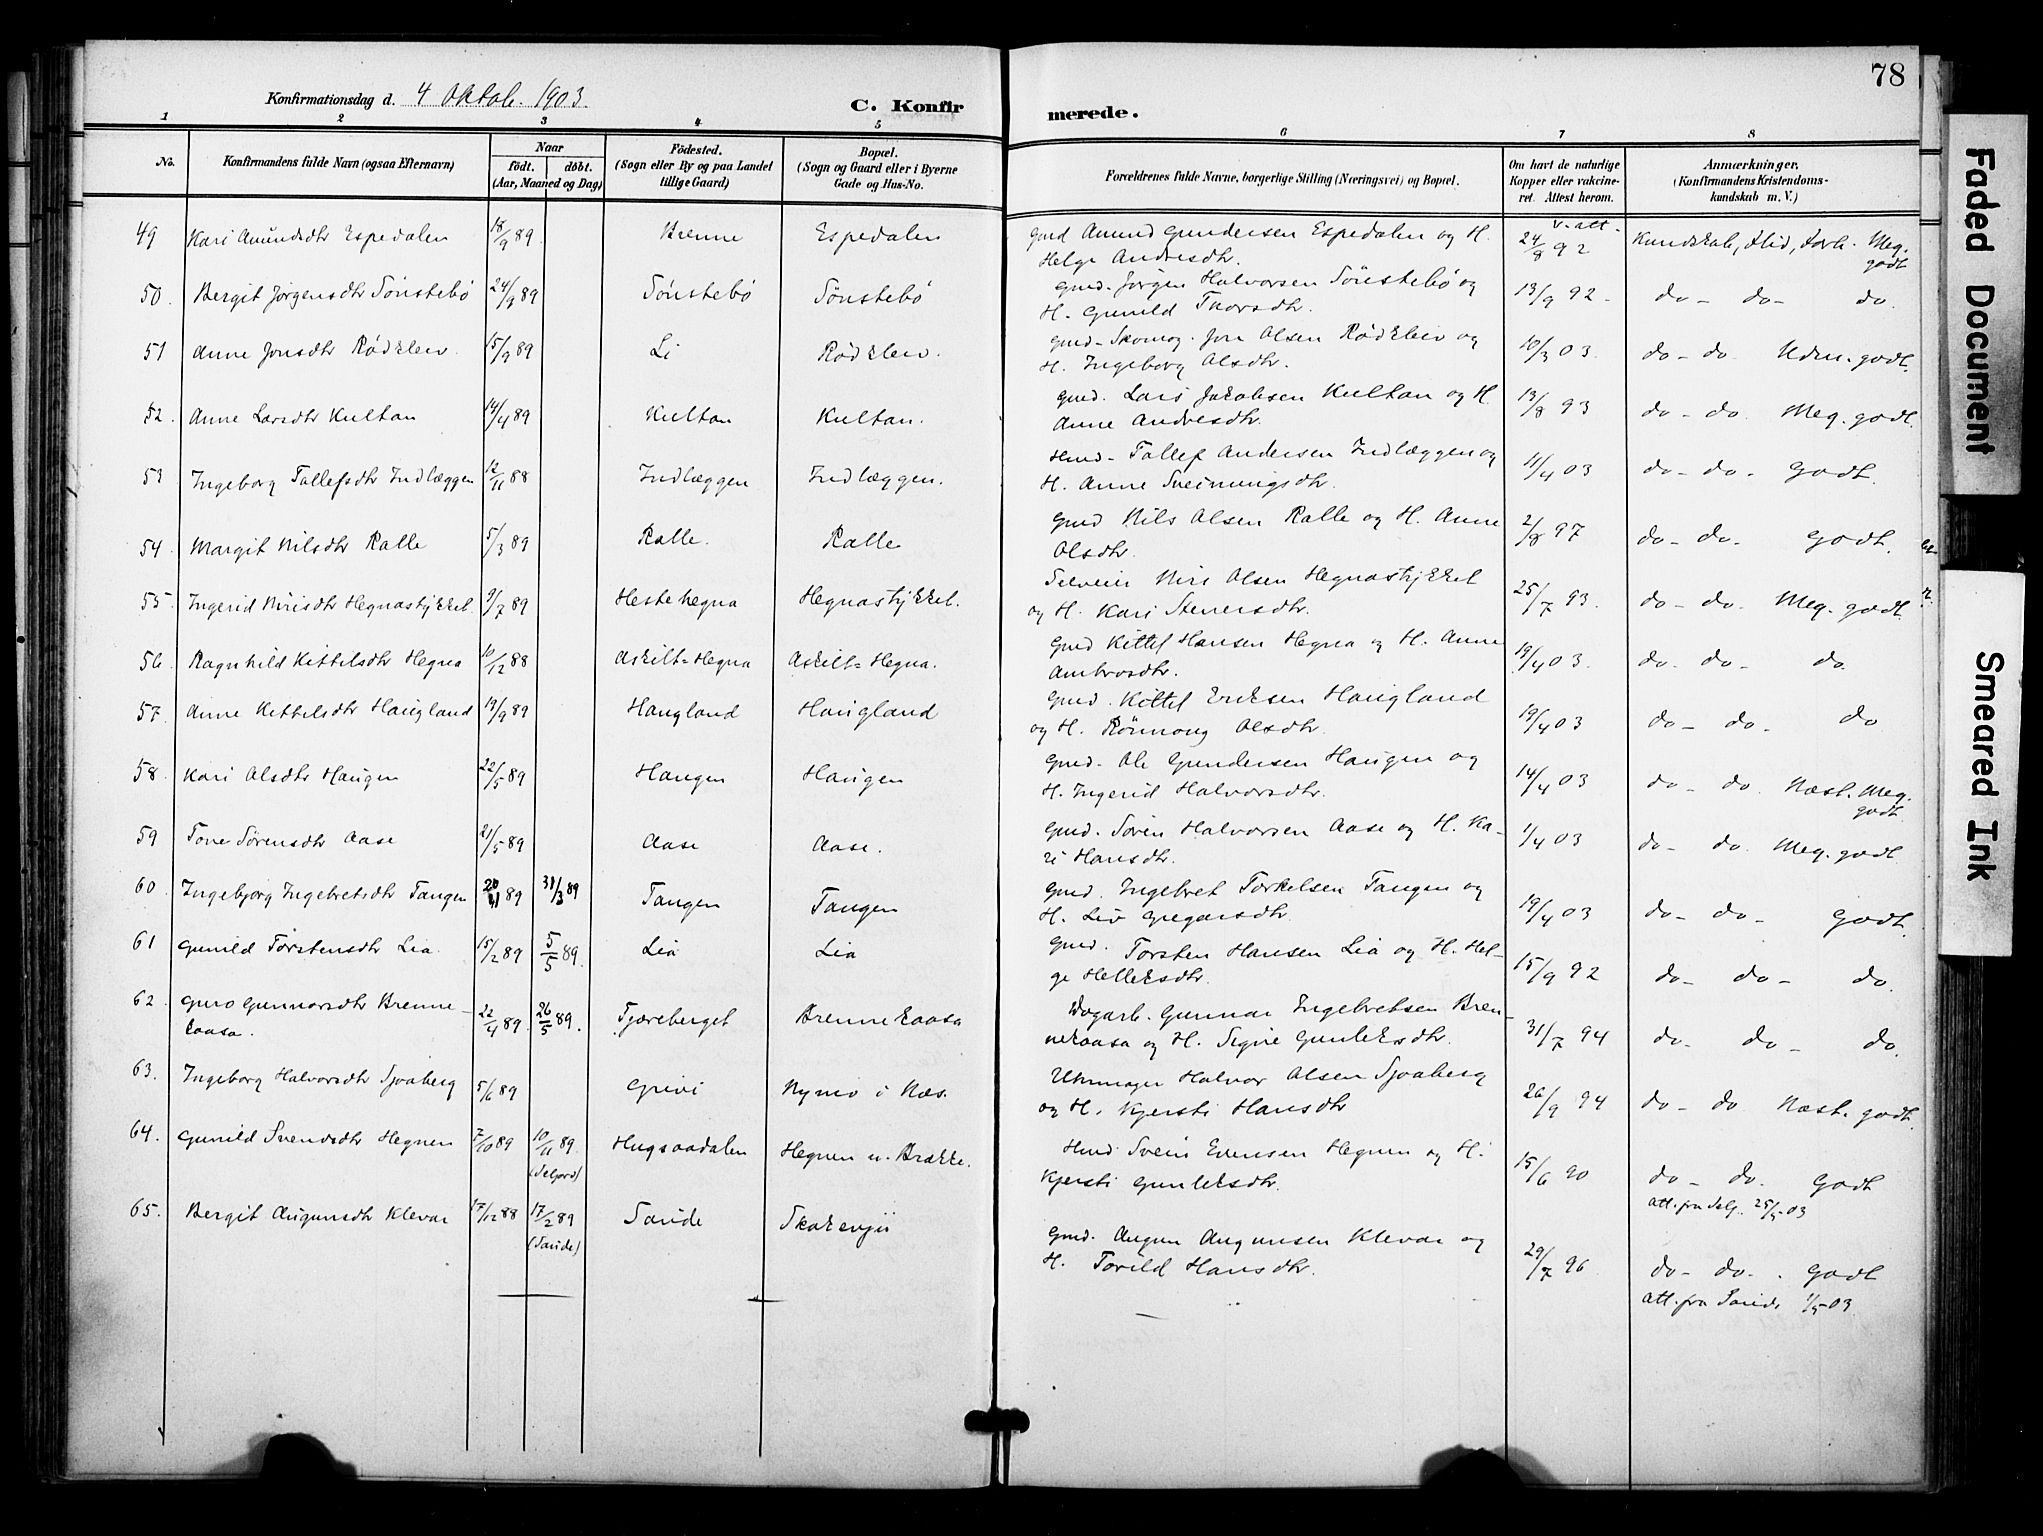 78
Konfirmationsdag d. 4 Oktob. 1903.
C. Konfir
merede.
1 2 3 4 5 6 7 8
No.
Konfirmandens fulde Navn (ogsaa Efternavn)
Naar
født. døbt.
(Aar, Maaned og Dag)
Fødested.
(Sogn eller By og paa Landet
tillige Gaard)
Bopæl.
(Sogn og Gaard eller i Byerne
Gade og Hus-No.
Forældrenes fulde Navne, borgerlige Stilling (Næringsvei) og Bopæl.
Om havt de naturlige
Kopper eller vakcine-
ret. Attest herom.
Anmærkninger.
(Konfirmandens Kristendoms-
kundskab m. V.)
49 Kari Amundsdtr Espedalen 18/9 89. Brenne Espedalen Gmd Amund Gundersen Espedalen og H.
Helge Andresdtr. v. att. 24/8 92 Kundskab, Flid, Forh. Meg.
godt
50. Bergit Jørgensdtr Sønstebø 24/9 89 Sønstebø Sønstebø Gmd. Jørgen Halvorsen Sønstebø og
H. Gunild Thorsdtr. 13/9 92 - do - do - do.
51 Anne Jonsdtr Rødklev. 15/9 89 Li Rødklev. Gmd - Skomag. Jon Olsen Rødklev og
H. Ingeborg Olsdtr. 10/3 03. do - do. Udm. godt.
52. Anne Larsdtr Kultan 14/4 89 Kultan Kultan. Gmd. Lars Jakobsen Kultan og H.
Anne Andresdtr. 13/8 93 do - do. Meg. godt.
53 Ingeborg Tallefsdtr Indlæggen 12/11 88 Indlæggen Indlæggen. Hmd - Tallef Andersen Indlæggen og
H. Anne Sveinungsdtr. 11/4 03 do - do - Godt.
54. Margit Nilsdtr Ralle 5/3 89 Ralle. Ralle Gmd Nils Olsen Ralle og H. Anne
Olsdtr. 2/8 97 do - do - Godt.
55. Ingerid Nirisdtr Hegnastykket. 9/7 89 Hestehegna Hegnastykket. Selveier Niri Olsen Hegnastykket
og H. Kari Stenersdtr. 25/7 93. do - do. Meg. godt.
56. Ragnhild Kittelsdtr Hegna 10/12 88 Askilt=Hegna Askilt=Hegna. Gmd Kittel Hansen Hegna og H. Anne
Ambrosdtr. 19/4 03. do. do - do.
57. Anne Kittelsdtr Haugland 19/9 89 Haugland Haugland Gmd. Kittel Eriksen Haugland
og H. Rønnaug Olsdtr. 19/4 03 do - do - do
58. Kari Olsdtr Haugen 22/5 89 Haugen Haugen Gmd. Ole Gundersen Haugen og
H. Ingerid Halvorsdtr. 14/4 03 do - do. Næst. Meg.
godt.
59 Tone Sørensdtr Aase 21/5 89 Aase Aase. Gmd. Søren Halvorsen Aase og H. Ka-
ri Hansdtr. 1/4 03 do - do. Meg. godt
60. Ingebjørg Ingebretsdtr Tangen 89 31/3 89 Tangen Tangen Gmd. Ingebret Torkelsen Tangen og
H. Liv Gregarsdtr. 19/4 03 do - do - Godt.
61 Gunild Torstensdtr Lia. 15/2 89 5/5 89. Lia Lia Gmd. Torsten Hansen Lia og H. Hel-
ge Helleksdtr. 15/9 92 do - do - do.
62. Guro Gunnarsdtr Brenne-
kaasa. 22/4 89. 26/5 89. Tjæreberget Brennekaasa Dagarb. Gunnar Ingebretsen Bren-
nekaasa og H. Signe Gunleksdtr. 31/7 94 do - do - do.
63. Ingeborg Halvorsdtr Sjoaberg 5/6 89 Grivi Nymo i Næs. Uhrmager Halvor Olsen Sjoaberg
og H. Kjersti Hansdtr 26/9 94 do - do Næst. godt.
64. Gunild Svendsdtr Hegnen 7/10 89 10/11 89.
(Seljord) Hugsaadalen Hegnen u. Brække. Hmd. Svein Evensen Hegnen og H.
Kjersti Gunleksdtr. 15/6 90 do - do. Godt
att. fra Selj. 25/5 03
65. Bergit Augunsdtr Klevar 17/12 88 17/2 89
(Saude) Saude Gmd. Augun Augunsen Klevar og
H. Torild Hansdtr. 29/7 96 do - do - Godt
att. fra Saude 1/5 03
Faded Document
Smeared Ink